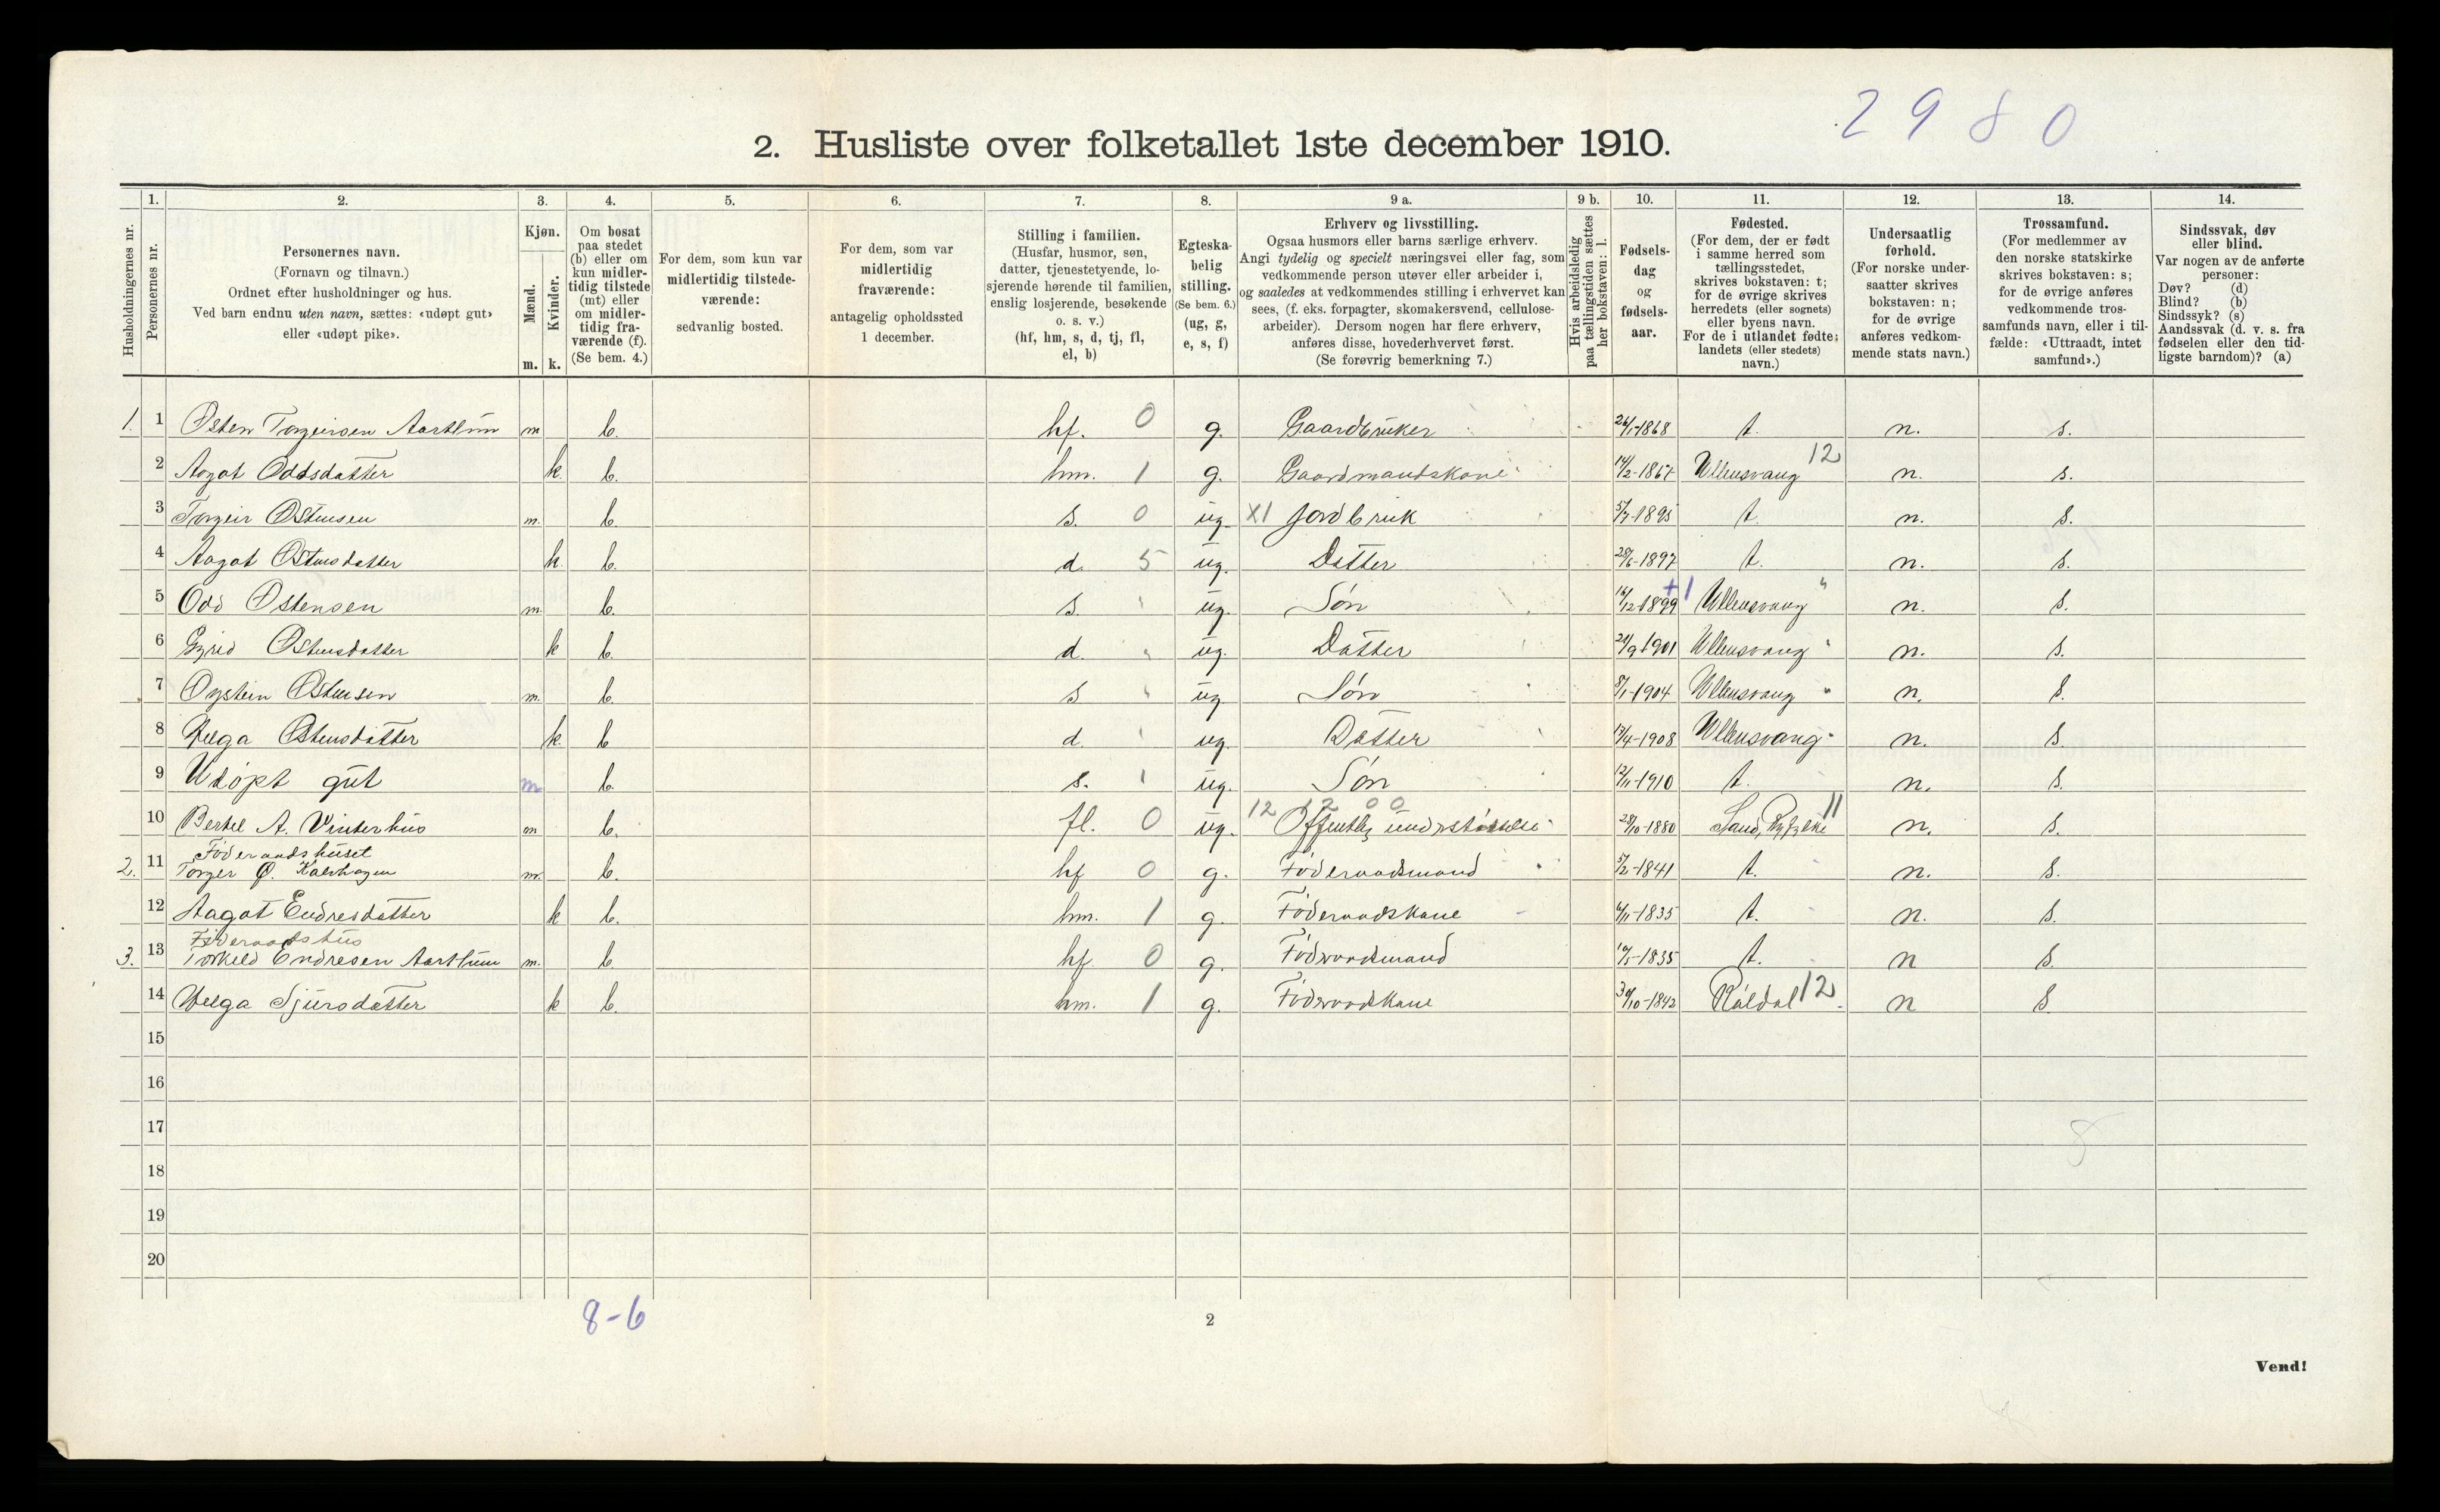 2980
2. Husliste over folketallet 1ste december 1910.
1. 2. 3. 4. 5. 6. 7. 8. 9 a. 9 b. 10. 11. 12. 13. 14.
Husholdningernes nr.
Personernes nr.
Personernes navn.
(Fornavn og tilnavn.)
Ordnet efter husholdninger og hus.
Ved barn endnu uten navn, sættes: «udøpt gut»
eller «udøpt pike».
Kjøn.
Mænd.
Kvinder.
m. k.
Om bosat
paa stedet
(b) eller om
kun midler-
tidig tilstede
(mt) eller
om midler-
tidig fra-
værende (f).
(Se bem. 4.)
For dem, som kun var
midlertidig tilstede-
værende:
sedvanlig bosted.
For dem, som var
midlertidig
fraværende:
antagelig opholdssted
1 december.
Stilling i familien.
(Husfar, husmor, søn,
datter, tjenestetyende, lo-
sjerende hørende til familien,
enslig losjerende, besøkende
o. s. v.)
(hf, hm, s, d, tj, fl,
el, b)
Egteska-
belig
stilling.
(Se bem. 6.)
(ug, g,
e, s, f)
Erhverv og livsstilling.
Ogsaa husmors eller barns særlige erhverv.
Angi tydelig og specielt næringsvei eller fag, som
vedkommende person utøver eller arbeider i,
og saaledes at vedkommendes stilling i erhvervet kan
sees, (f. eks. forpagter, skomakersvend, cellulose-
arbeider). Dersom nogen har flere erhverv,
anføres disse, hovederhvervet først.
(Se forøvrig bemerkning 7.)
Hvis arbeidsledig
paa tællingstiden sættes
her bokstaven: l.
Fødsels-
dag
og
fødsels-
aar.
Fødested.
(For dem, der er født
i samme herred som
tællingsstedet,
skrives bokstaven: t;
for de øvrige skrives
herredets (eller sognets)
eller byens navn.
For de i utlandet fødte:
landets (eller stedets)
navn.)
Undersaatlig
forhold.
(For norske under-
saatter skrives
bokstaven: n;
for de øvrige
anføres vedkom-
mende stats navn.)
Trossamfund.
(For medlemmer av
den norske statskirke
skrives bokstaven: s;
for de øvrige anføres
vedkommende tros-
samfunds navn, eller i til-
fælde: «Uttraadt, intet
samfund».)
Sindssvak, døv
eller blind.
Var nogen av de anførte
personer:
Døv? (d)
Blind? (b)
Sindssyk? (s)
Aandssvak (d. v. s. fra
fødselen eller den tid-
ligste barndom)? (a)
1. 1 Østen Torgeirsen Aarthun m b. hf. 0 g. Gaardbruker 26/1-1868 t. n. s.
2 Aagot Oddsdatter k. b. hm. 1 g. Gaardmandskone 14/2-1867 Ullensvang 12 n. s.
3 Torgeir Østensen m. b. s. 0 ug. X1 Jordbruk 5/7-1895 t. n. s.
4 Aagot Østensdatter k. b. d. 5 ug. Datter 28/6-1897 t. n. s.
5 Odd Østensen m. b. s. ug. Søn 16/12-1899 +1 Ullensvang n. s.
6 Gyrid Østensdatter k b. d. ug. Datter 21/9-1901 Ullensvang n. s.
7 Øystein Østensen m. b. s ug Søn 8/1-1904 Ullensvang n. s.
8 Helga Østensdatter k. b d. ug. Datter 17/4-1908 Ullensvang n. s.
9 Udøpt gut m b. s. ug. Søn 12/11-1910 t. n. s.
12 12 0 0
10 Bertel A. Vinterhus m b. fl. 0 ug. Offentlig understøttelse 28/10-1880 Sand, Ryfylke 11 n. s.
Føderaadshuset
2. 11 Torger Ø. m. b. hf 0 g. Føderaadsmand 5/2-1841 t. n. s.
12 Aagot Endresdatter k b. hm. 1 g. Føderaadskone 6/11-1835 t. n. s.
Føderaadshus
3. 13 Torkeld Endresen Aarthun m. b. hf. 0 g. Føderaadsmand 10/5-1835 t. n s.
14 Helga Sjursdatter k b. hm. 1 g. Føderaadskone 30/10-1842 Røldal 12 n s.
15
16
17
18
19
20
8-6
2
Vend!